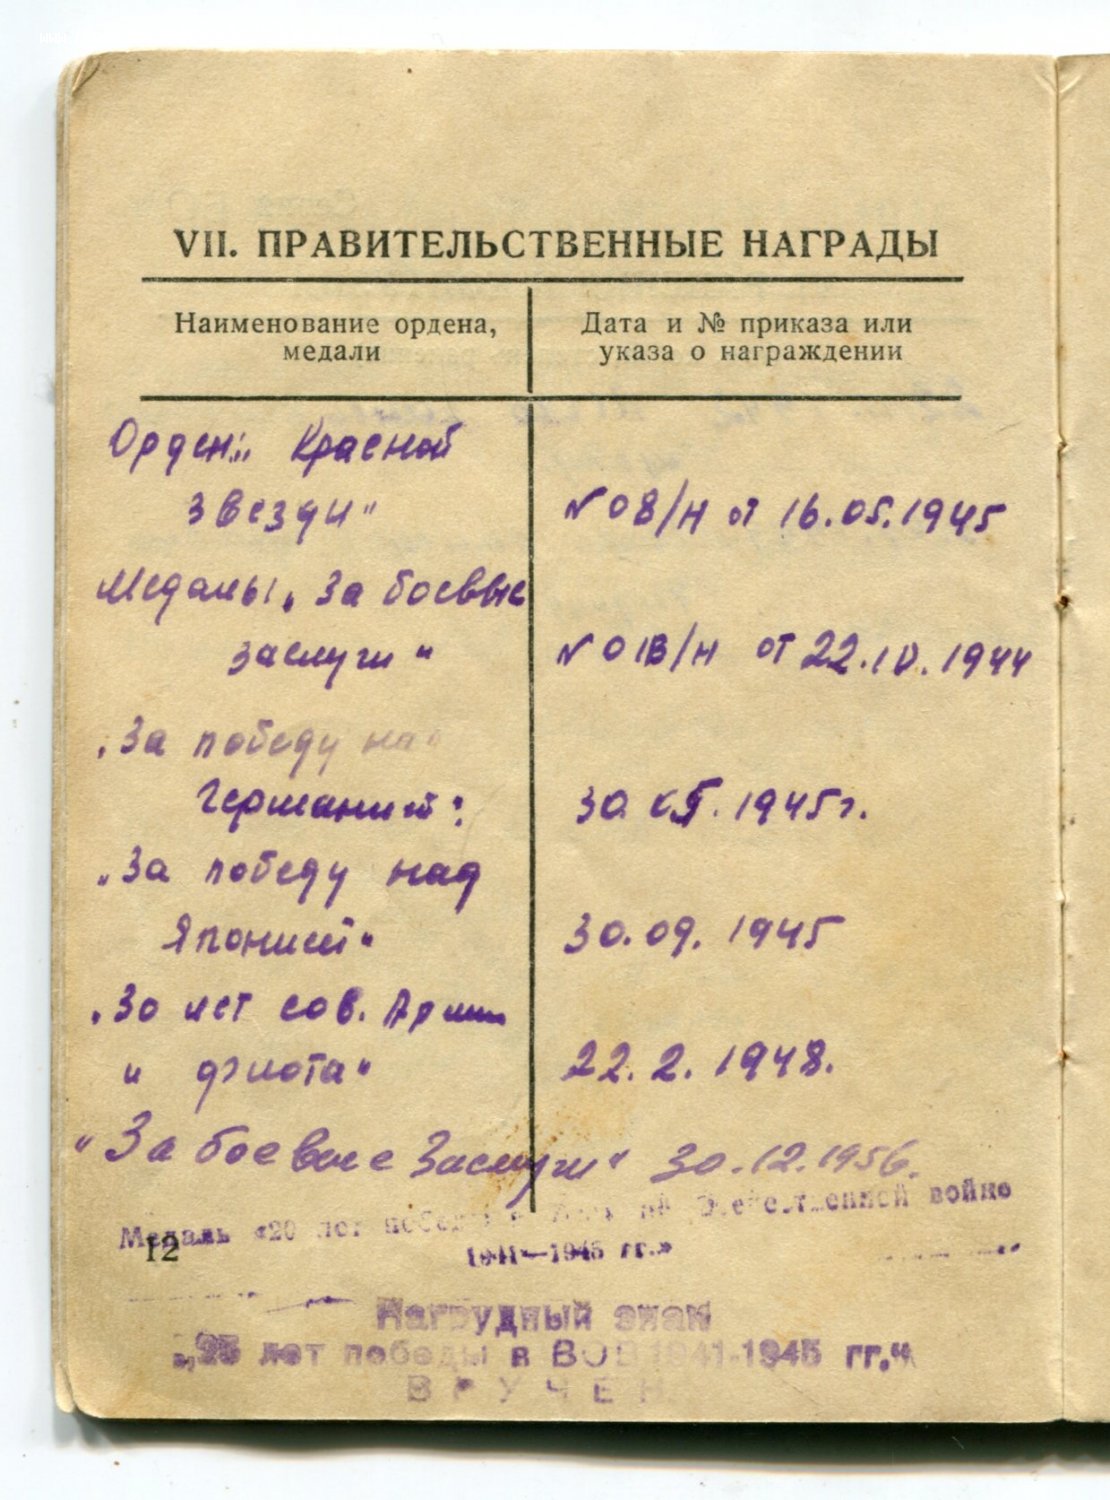 VII. ПРАВИТЕЛЬСТВЕННЫЕ НАГРАДЫ
Наименование ордена,
медали
Дата и № приказа или
указа о награждении
Орден „ Красной
звезды"
№ 08/н от 16.05.1945
Медалы „За боевые
заслуги"
№ 01В/н от 22.10.1944
„За победу над
Германией"
30. 1945г.
„За победу над
Японией"
30.09.1945
„30 лет сов. Армии
и флота"
22.2.1948.
"За боевые Заслуги" 30.12.1956.
Медаль «20 лет победы в Отечественной войне
1941—1945 гг.»
12
Нагрудный знак
„25 лет победы в ВОВ 1941-1945 гг."
ВРУЧЕН